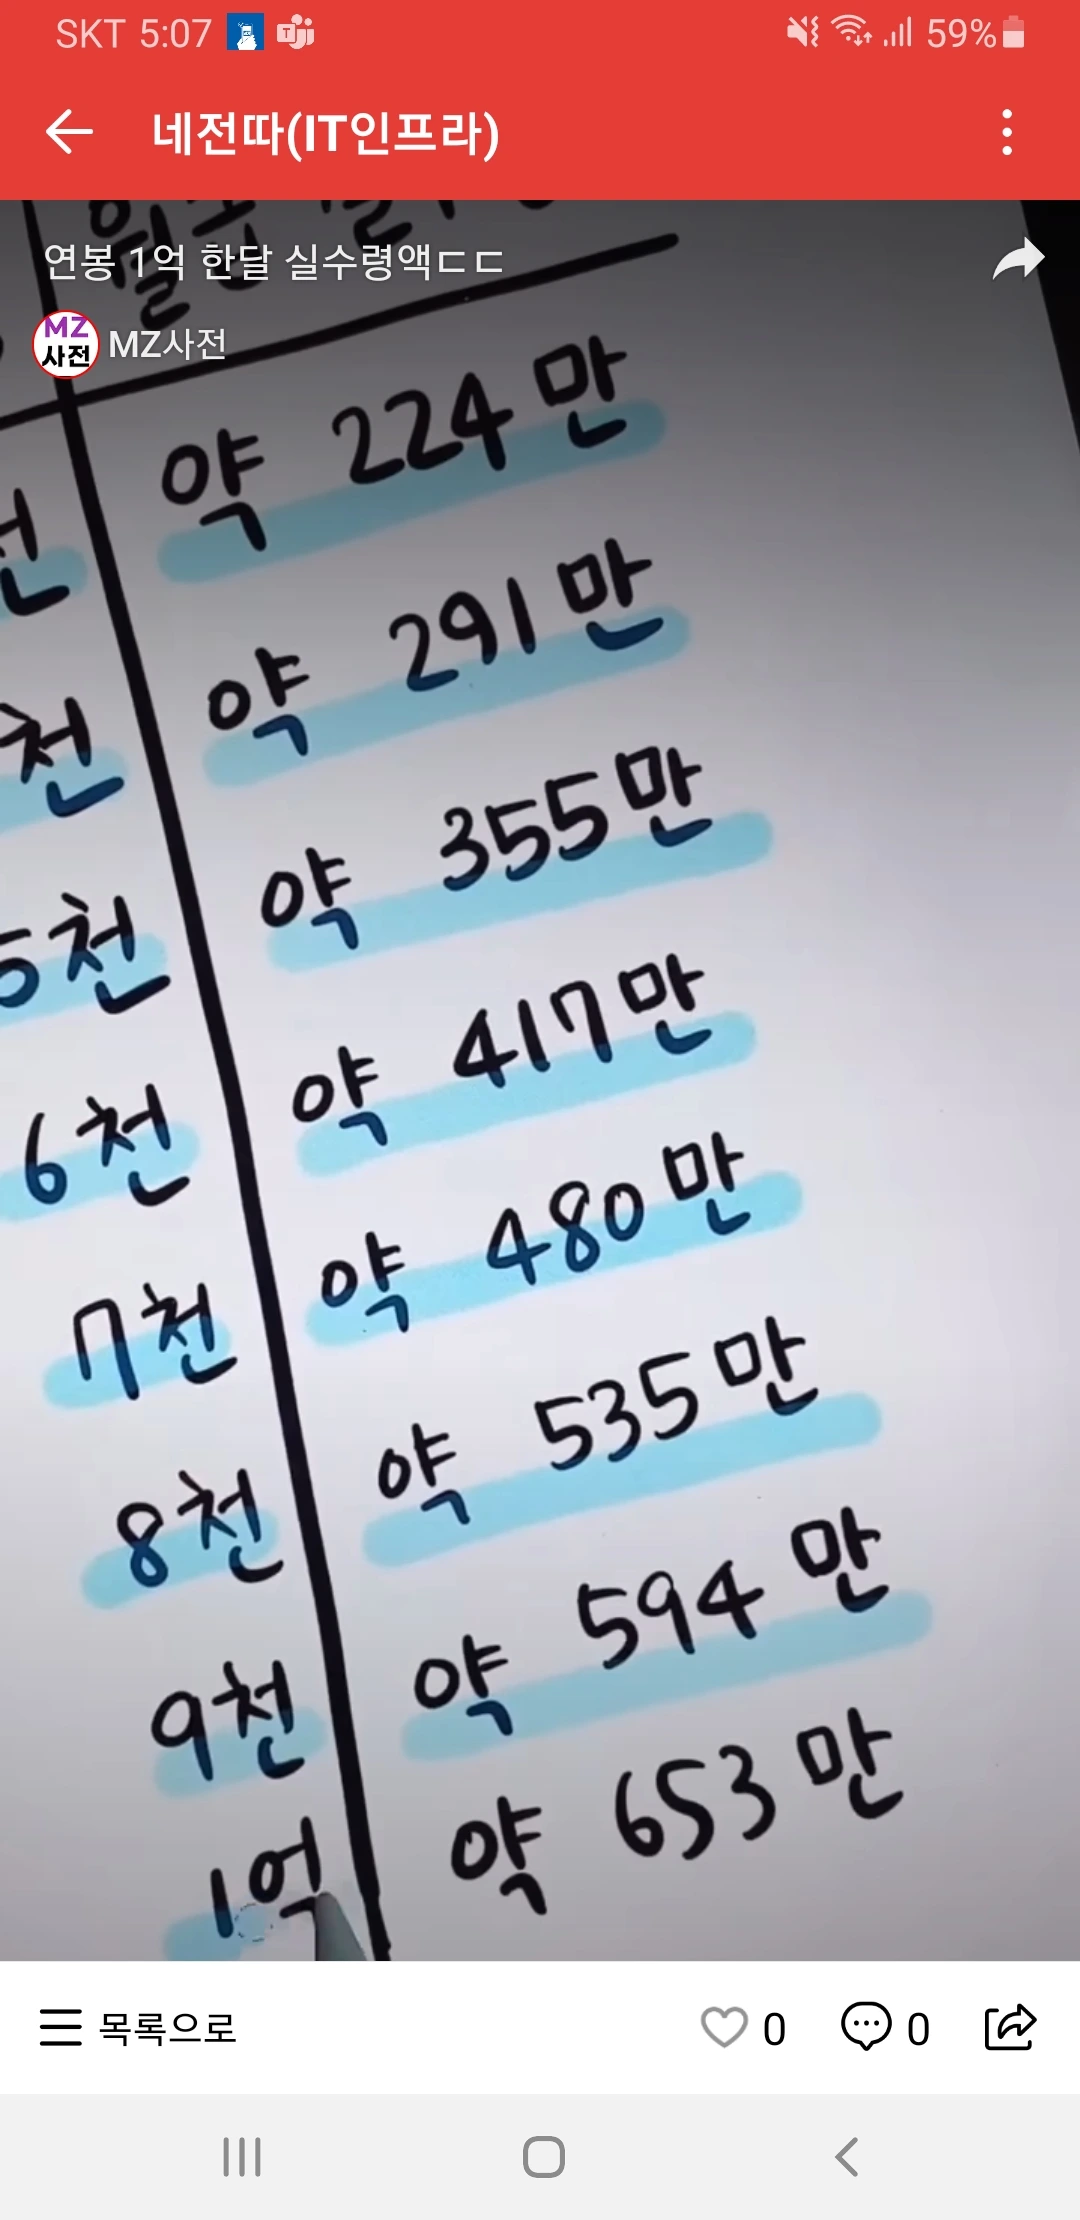 SKT 5:07
59%
네전따(IT인프라)
연봉 1억 한달 실수령액ㄷㄷ
MZ
사전
MZ사전
약 224만
천 약 291만
5천 약 355만
6천 약 417만
7천 약 480만
8천 약 535만
9천 약 594만
1억 약 653만
목록으로
0
0